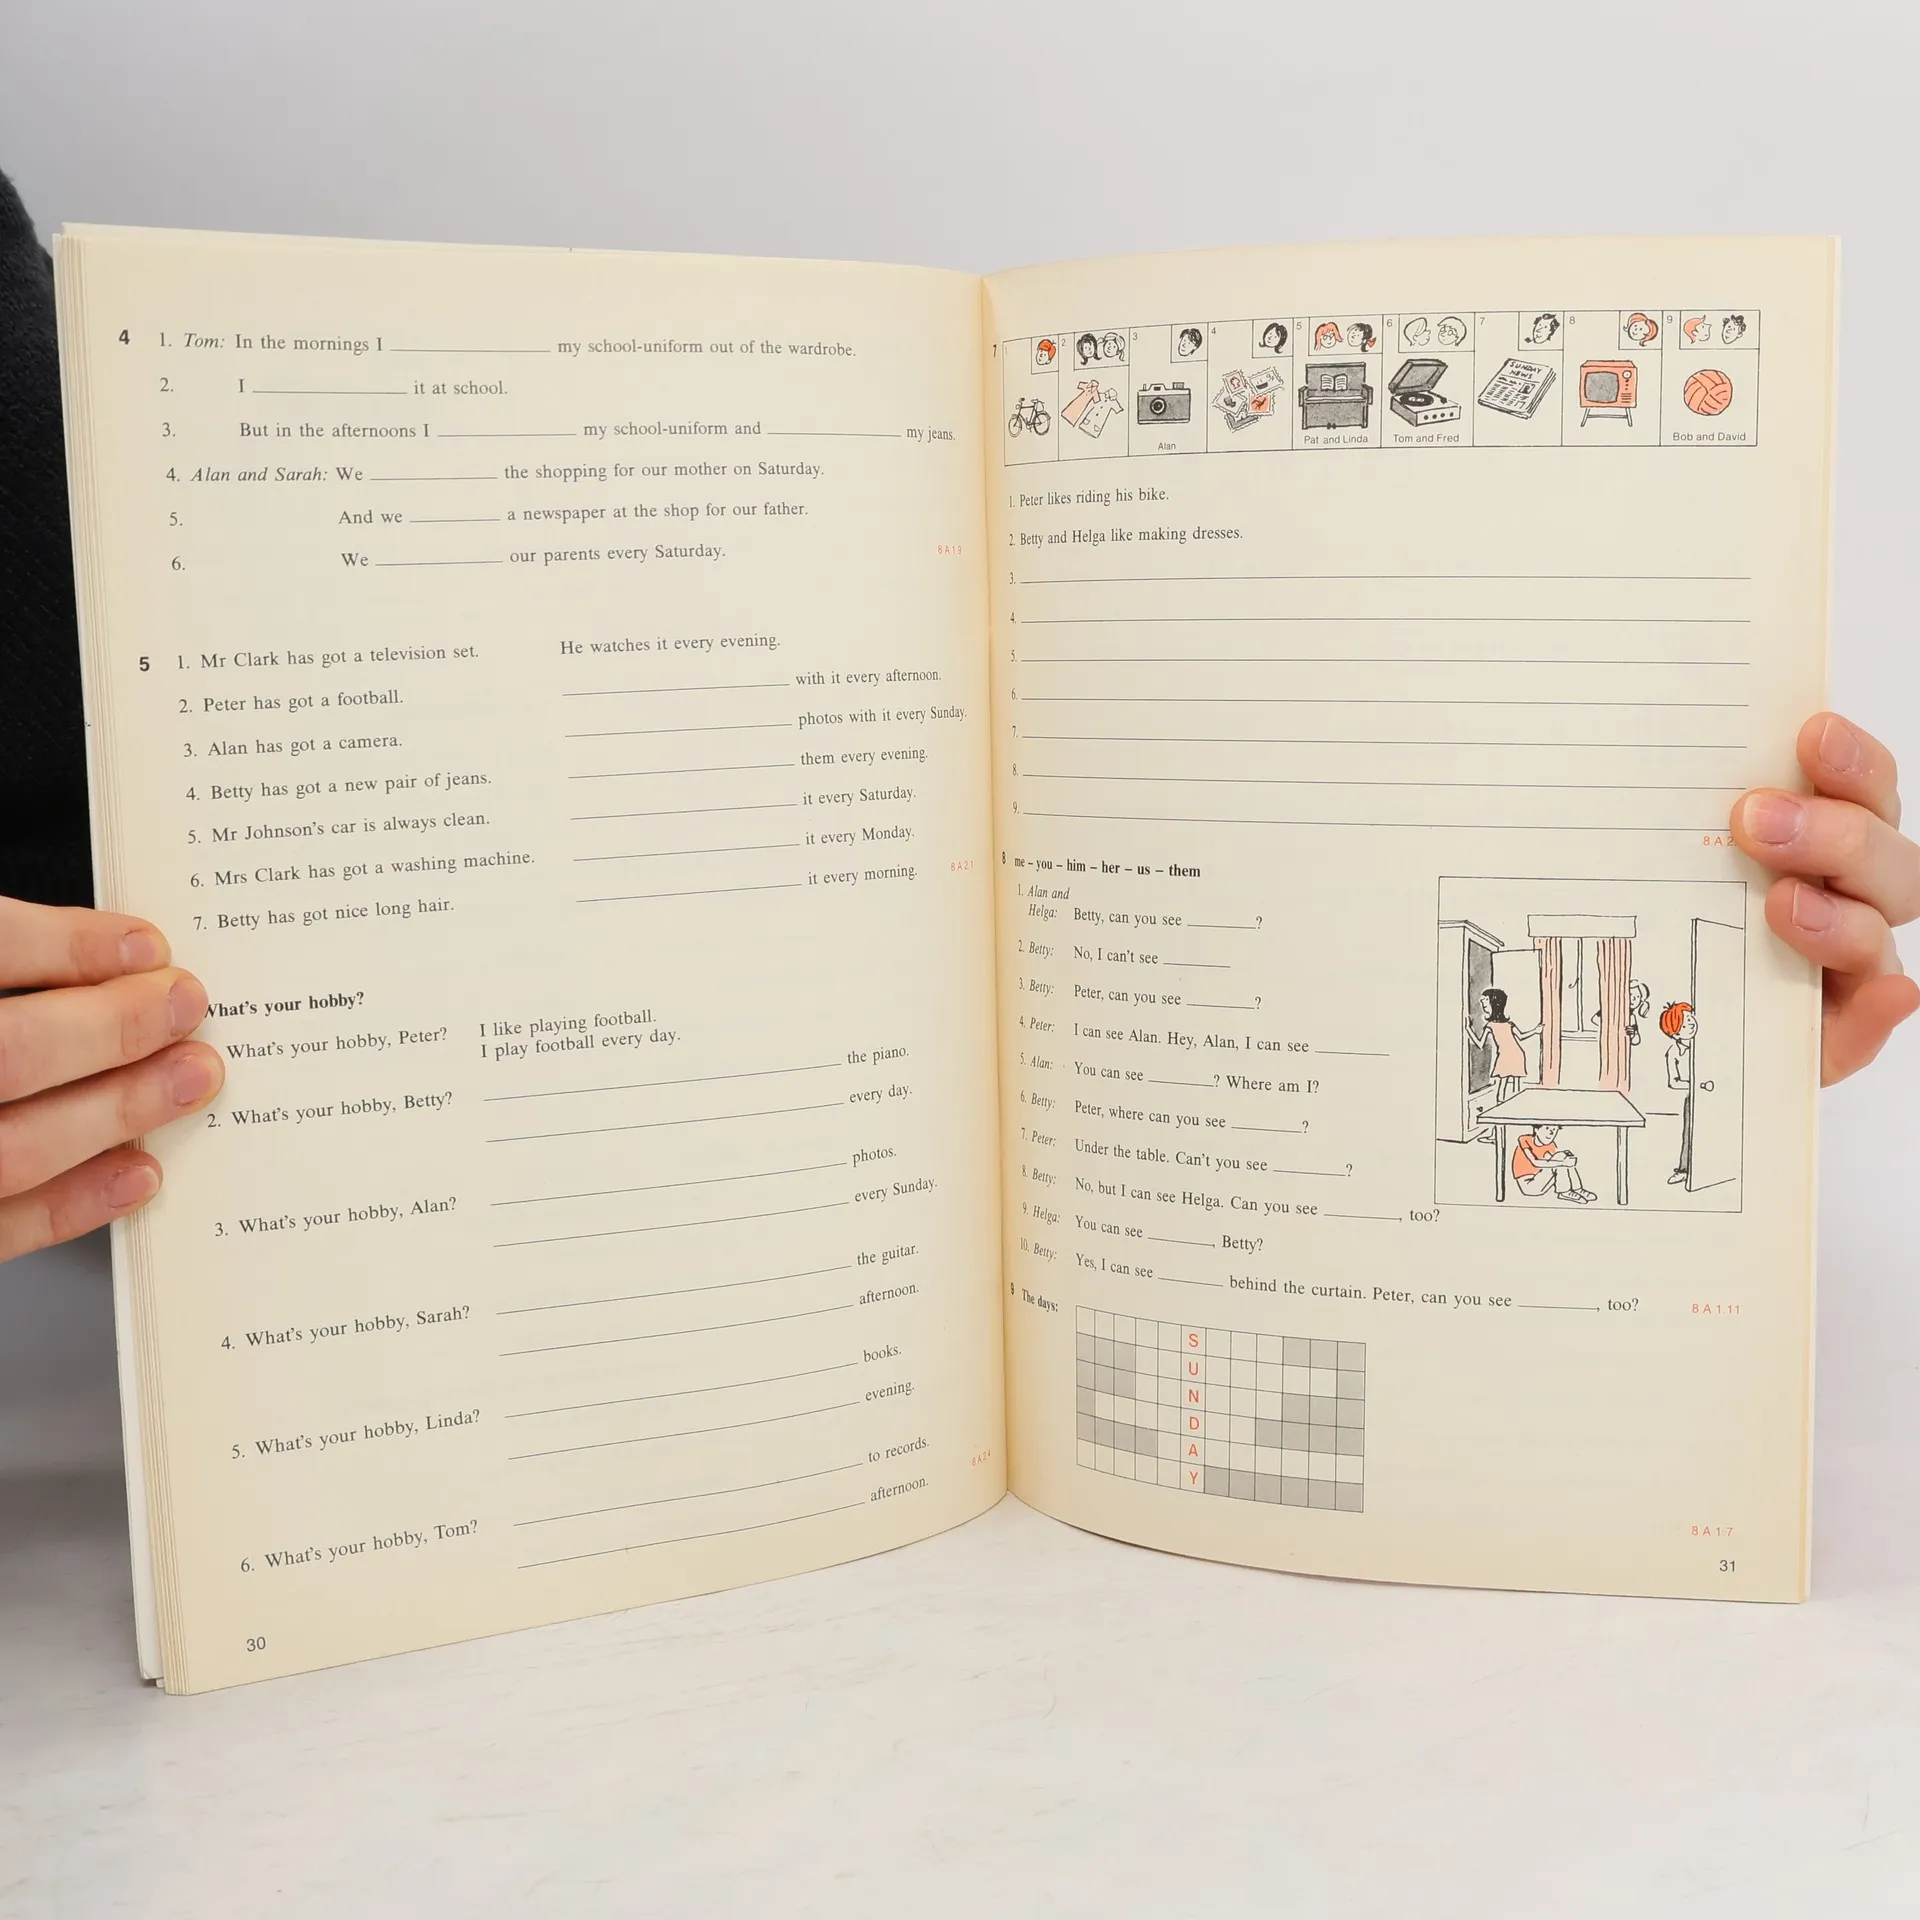 4 1. Tom: In the mornings I ____ my school-uniform out of the wardrobe.
2. I ____ it at school.
3. But in the afternoons I ____ my school-uniform and ____ my jeans.
4. Alan and Sarah: We ____ the shopping for our mother on Saturday.
5. And we ____ a newspaper at the shop for our father.
6. We ____ our parents every Saturday.
8A19
5 1. Mr Clark has got a television set. He watches it every evening.
2. Peter has got a football. ____ with it every afternoon.
3. Alan has got a camera. ____ photos with it every Sunday.
4. Betty has got a new pair of jeans. ____ them every evening.
5. Mr Johnson's car is always clean. ____ it every Saturday.
6. Mrs Clark has got a washing machine. ____ it every Monday.
7. Betty has got nice long hair. ____ it every morning.
8A21
What's your hobby?
What's your hobby, Peter? I like playing football.
I play football every day.
2. What's your hobby, Betty? ____ the piano.
____ every day.
3. What's your hobby, Alan? ____ photos.
____ every Sunday.
4. What's your hobby, Sarah? ____ the guitar.
____ afternoon.
5. What's your hobby, Linda? ____ books.
____ evening.
6. What's your hobby, Tom? ____ to records.
____ afternoon.
8A24
30
7
1 2 3 4 5 6 7 8 9
SUNDAY
NEWS
Alan
Pat and Linda
Tom and Fred
Bob and David
1. Peter likes riding his bike.
2. Betty and Helga like making dresses.
3. ____
4. ____
5. ____
6. ____
7. ____
8. ____
9. ____
8 A 2
8 me – you – him – her – us – them
1. Alan and
Helga: Betty, can you see ____?
2. Betty: No, I can't see ____
3. Betty: Peter, can you see ____?
4. Peter: I can see Alan. Hey, Alan, I can see ____
5. Alan: You can see ____? Where am I?
6. Betty: Peter, where can you see ____?
7. Peter: Under the table. Can't you see ____?
8. Betty: No, but I can see Helga. Can you see ____, too?
9. Helga: You can see ____, Betty?
10. Betty: Yes, I can see ____ behind the curtain. Peter, can you see ____, too?
8 A 1.11
9 The days:
S
U
N
D
A
Y
8 A 1.7
31